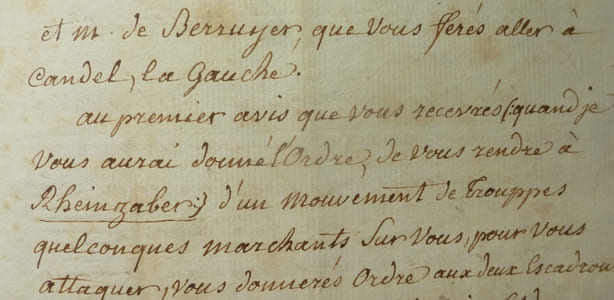 et m. de Berruyer, que vous ferés aller à
Candel, la Gauche.
au premier avis que vous recevrés (quand je
vous aurai donné l'Ordre, de vous rendre à
Rheinzaber:) d'un mouvement de Trouppes
quelconques marchants sur vous, pour vous
attaquer, vous donnerés Ordre aux deux Escadron